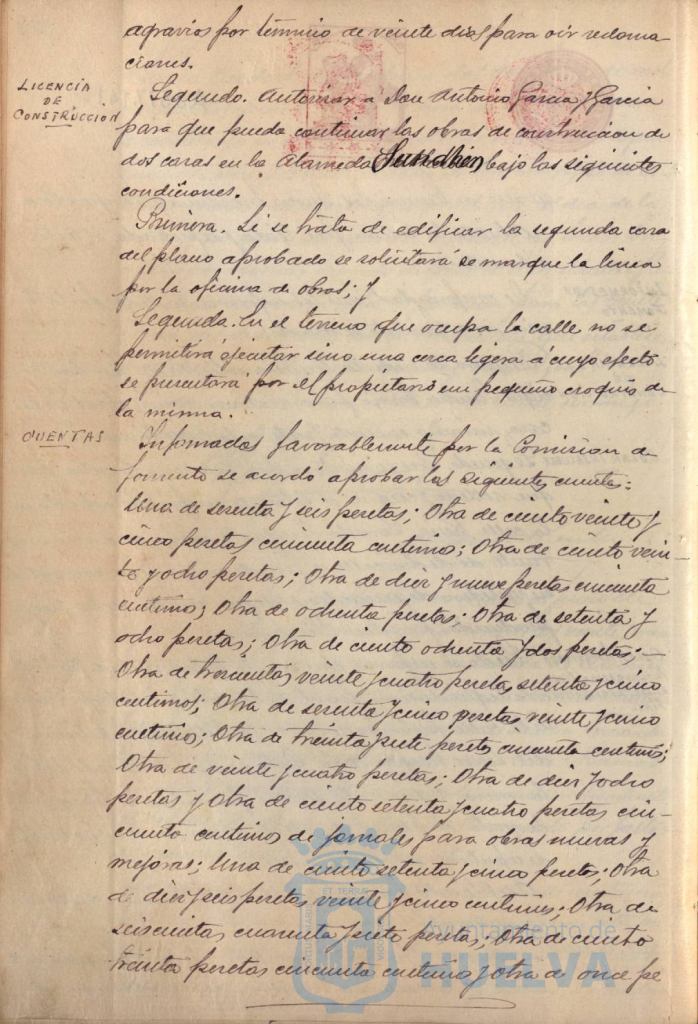 agravios por término de veinte dias para oir reclama
ciones.
LICENCIA
DE
CONSTRUCCIÓN
Segundo. Autorizar a Don Antonio Garcia y Garcia
para que pueda continuar las obras de construccion de
dos casas en la Alameda Sundhein bajo las siguientes
condiciones.
Primera. Si se trata de edificar la segunda casa
del plano aprobado se solicitará se marque la linea
por la oficina de obras; y
Segunda. En el terreno que ocupa la calle no se
permitirá ejecutar sino una cerca ligera á cuyo efecto
se presentará por el propietario un pequeño croquis de
la misma.
CUENTAS
Informadas favorablemente por la Comision de
fomento se acordó aprobar las siguientes cuentas:
Una de sesenta y seis pesetas; Otra de ciento veinte y
cinco pesetas cincuenta centimos; Otra de ciento vein-
te y ocho pesetas; Otra de diez y nueve pesetas cincuenta
centimos; Otra de ochenta pesetas; Otra de setenta y
ocho pesetas; Otra de ciento ochenta y dos pesetas;—
Otra de trescientas veinte y cuatro pesetas setenta y cinco
centimos; Otra de sesenta y cinco pesetas veinte y cinco
centimos; Otra de treinta y siete pesetas cincuenta centimos;
Otra de veinte y cuatro pesetas; Otra de diez y ocho
pesetas y otra de ciento setenta y cuatro pesetas cin-
cuenta centimos de jornales para obras nuevas y
mejoras; Una de ciento setenta y cinco pesetas; Otra
de diez y seis pesetas veinte y cinco centimos; Otra de
seiscientas cuarenta y siete pesetas; Otra de ciento
treinta pesetas cincuenta centimos y otra de once pe
Ayuntamiento de
HUELVA